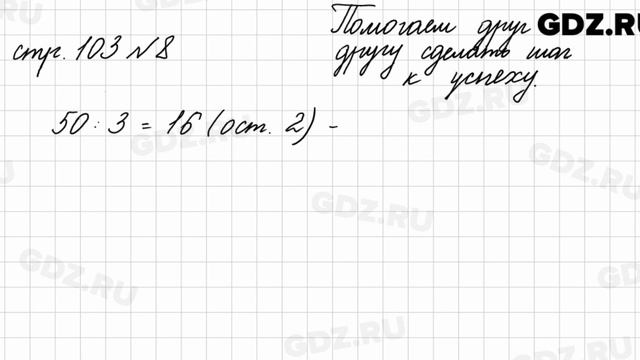 Помогаем друг
другу сделать шаг
к успеху.
GDZ.RU
стр. 103 № 8
50 : 3 = 16 (ост. 2) -
GDZ.RU
GDZ.RU
GDZ.RU
GDZ.RU
GDZ.RU
GDZ.RU
GDZ.RU